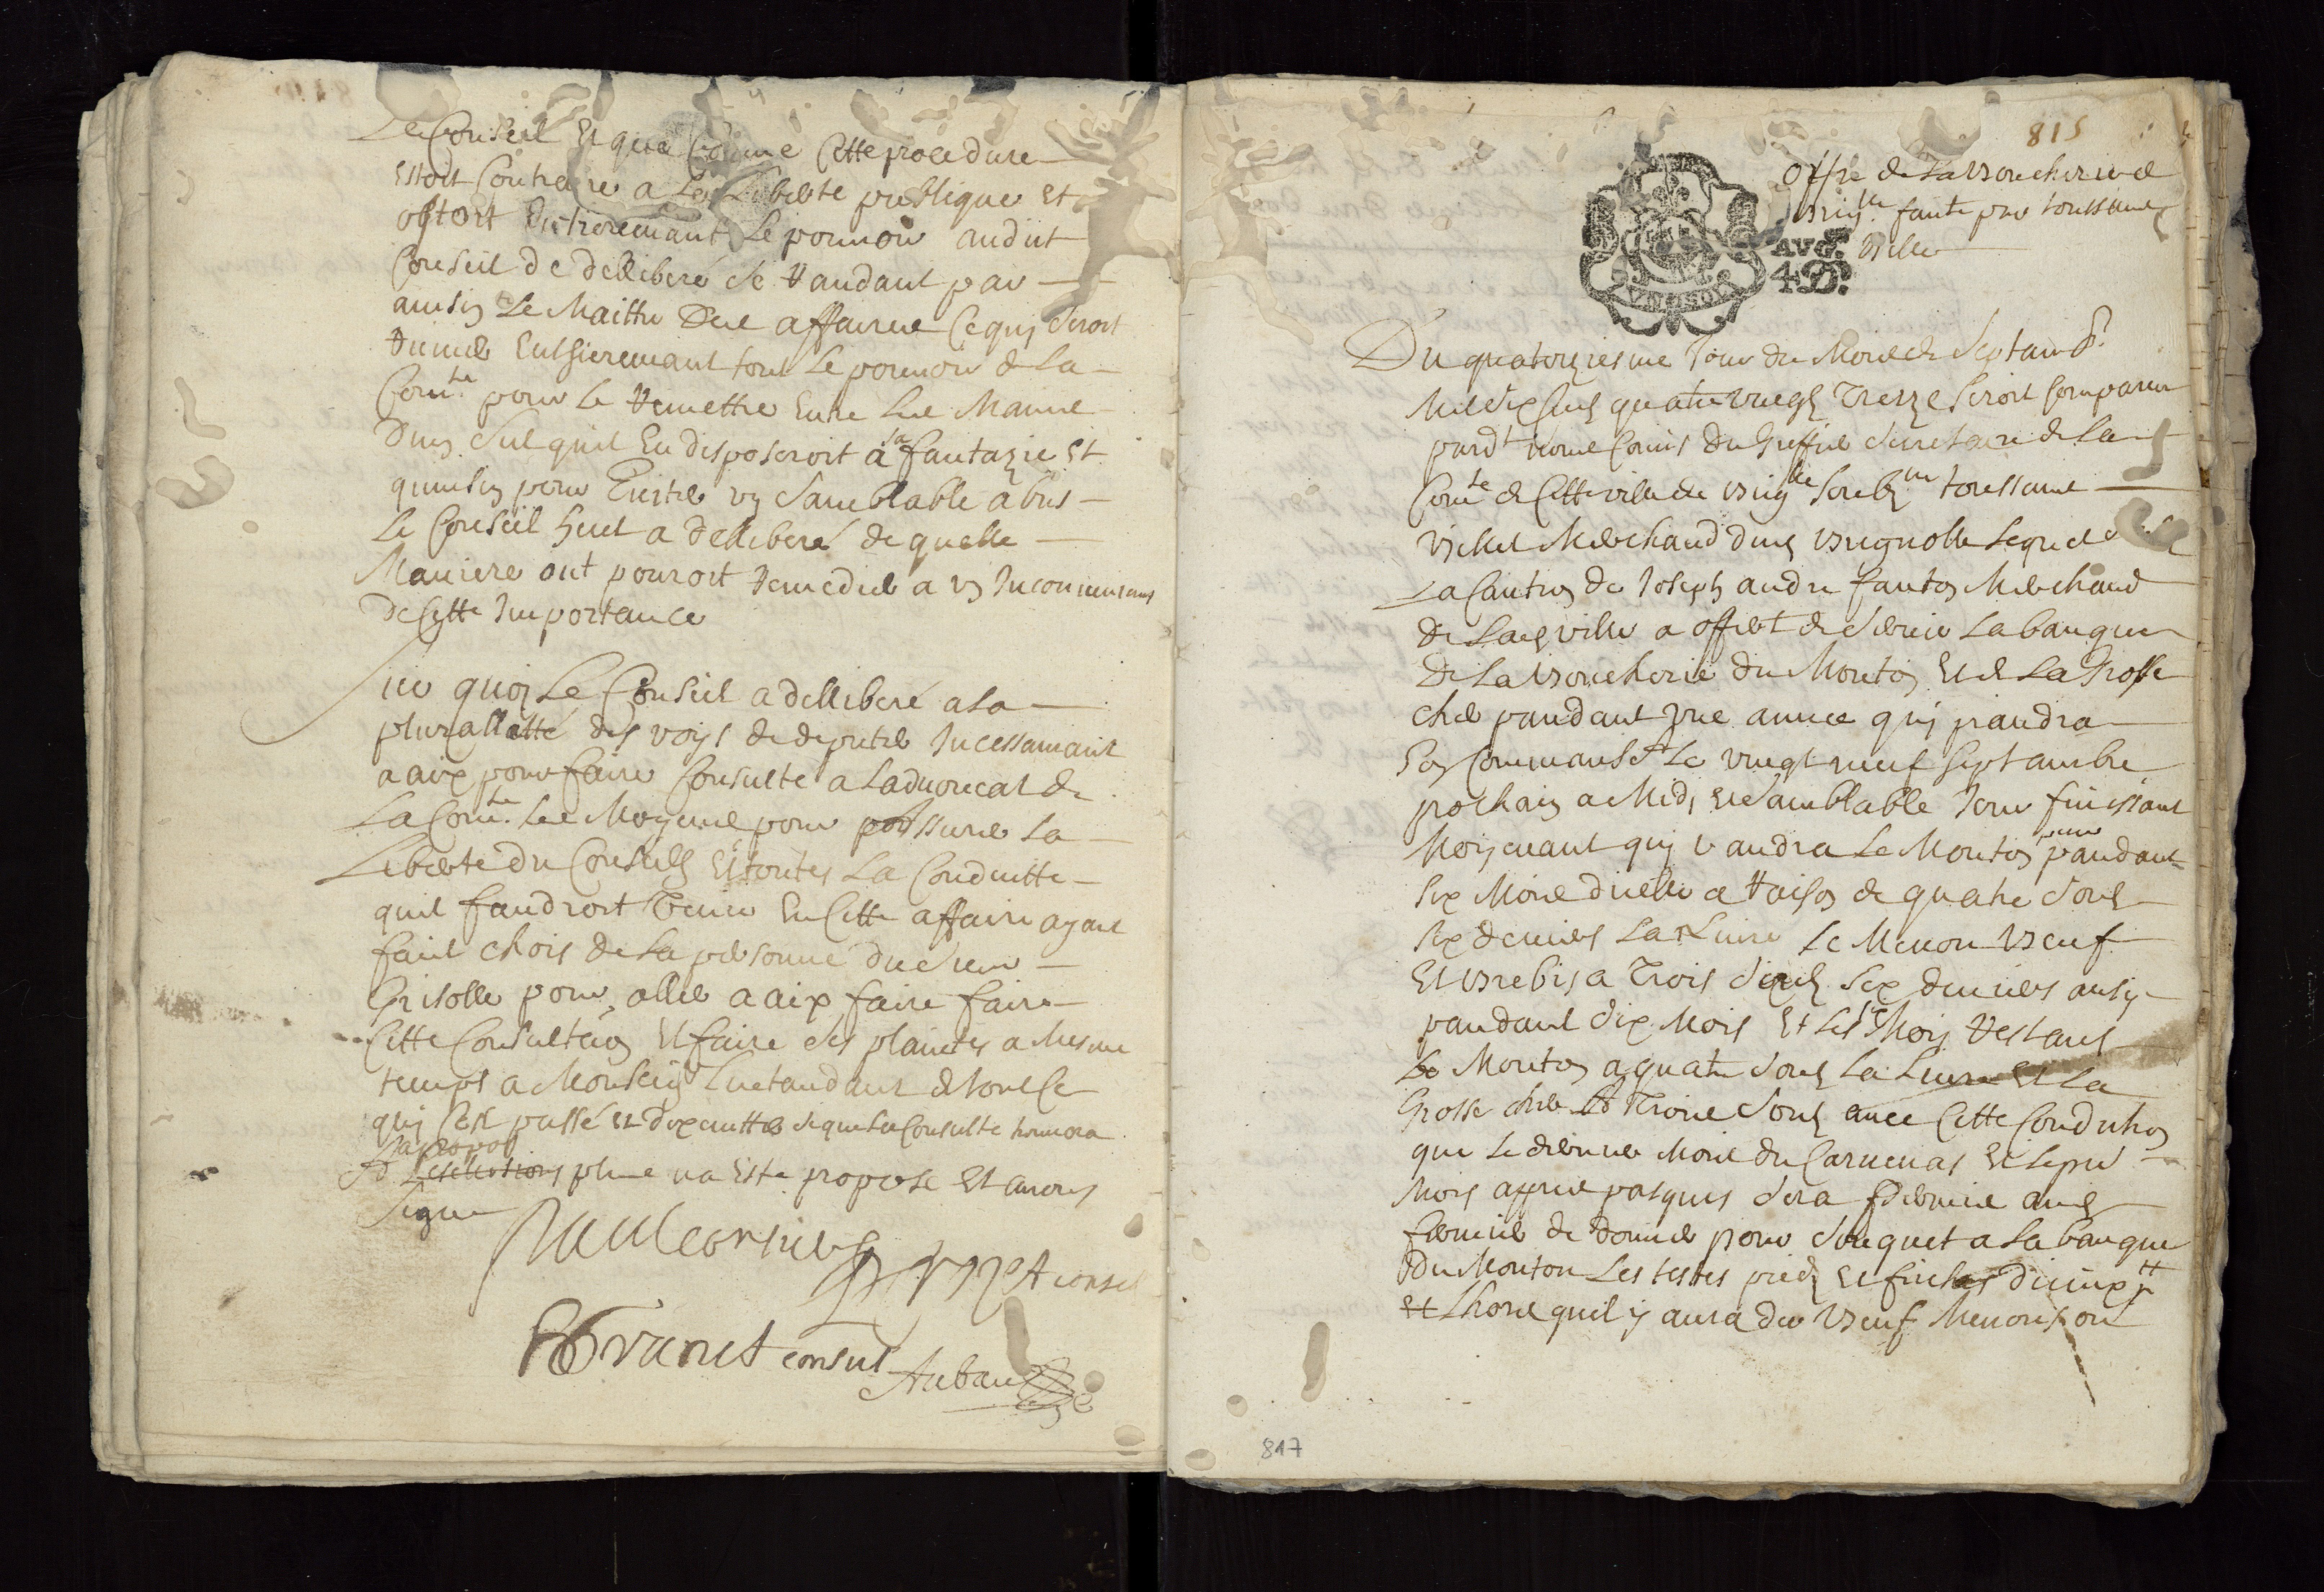 Le Conseil Et que Comme Cette procedure
Estoit Contraire a La Liberte publique Et
ostoit Entieremant Le pouuoir audit
Conseil de delliberé se Randant par
ainsin Le Maittre Des affaires Ce quy seroit
Enthieremant tout Le pouuoir de La
Comte pour Le Remettre Entre Les Mains
dun seul quil En disposeroit a sa fantazie Et
quinsin pour Euiter vn samblable abus
Le Conseil Heut a delliberé de quelle
Maniere ont pouroit Remedier a vn Inconueniant
de Cette Importance
Sur quoy Le Conseil a delliberé a la
plurallitté des voys de deputer Incessamant
a aix pour faire Consulte a Laduoucat de
La Comte Les Moyens pour La
Liberte du Conseilh Et toutes La Conduitte
quil faudroit Tenir En Cette affaire ayant
fait chois de La persoune du sieur
Grisolle pour aller a aix faire faire
Cette Consultaon Et faire des plaintes a Mesme
temps a Monseigr Lintandant de tout Ce
quy sest passé Et dexecutter se que La Consulte
plus na Este propose Et auons
Signe
consul
Branet consul
815
offre de La Boucherie de
faite par toussaint
Villet
AVG.
4 D.
Du quatorziesme Jour du Mois de septambr
Mil six Cens quatre vingts Treize seroit Comparu
pardt nous Comis du Greffier secretaire de La
Comte de Cette ville de Brigle sousne toussaint
Villet Merchand dud Brignolle Lequel
La Caution de Joseph andre fanton Merchand
de Lad ville a offert de seruir La banque
de La Boucherie du Mouton Et de La Grosse
cher pandant vne annee quy prandra
son Commansemt Le vingt neuf septambre
prochain a Midy Et samblable Jour finissant
Moyenant quy vandra Le Mouton pandant
six Mois dicelle a Raison de quatre sous
six deniers La Liure Le Menon Beuf
Et Brebis a Trois soulz six deniers ausy
pandant six Mois Et Les six Mois Restant
Le Mouton a quatre soulz La Liure Et La
Grosse cher A Trois soulz auec Cette Condition
que Le dernier Mois du Carnenas Et Le pre
Mois appres pasques sera
fermier de donner pour souquet a La banque
du Mouton Les testes pieds Et
Et Lhors quil y aura du Beuf Menons ou
817